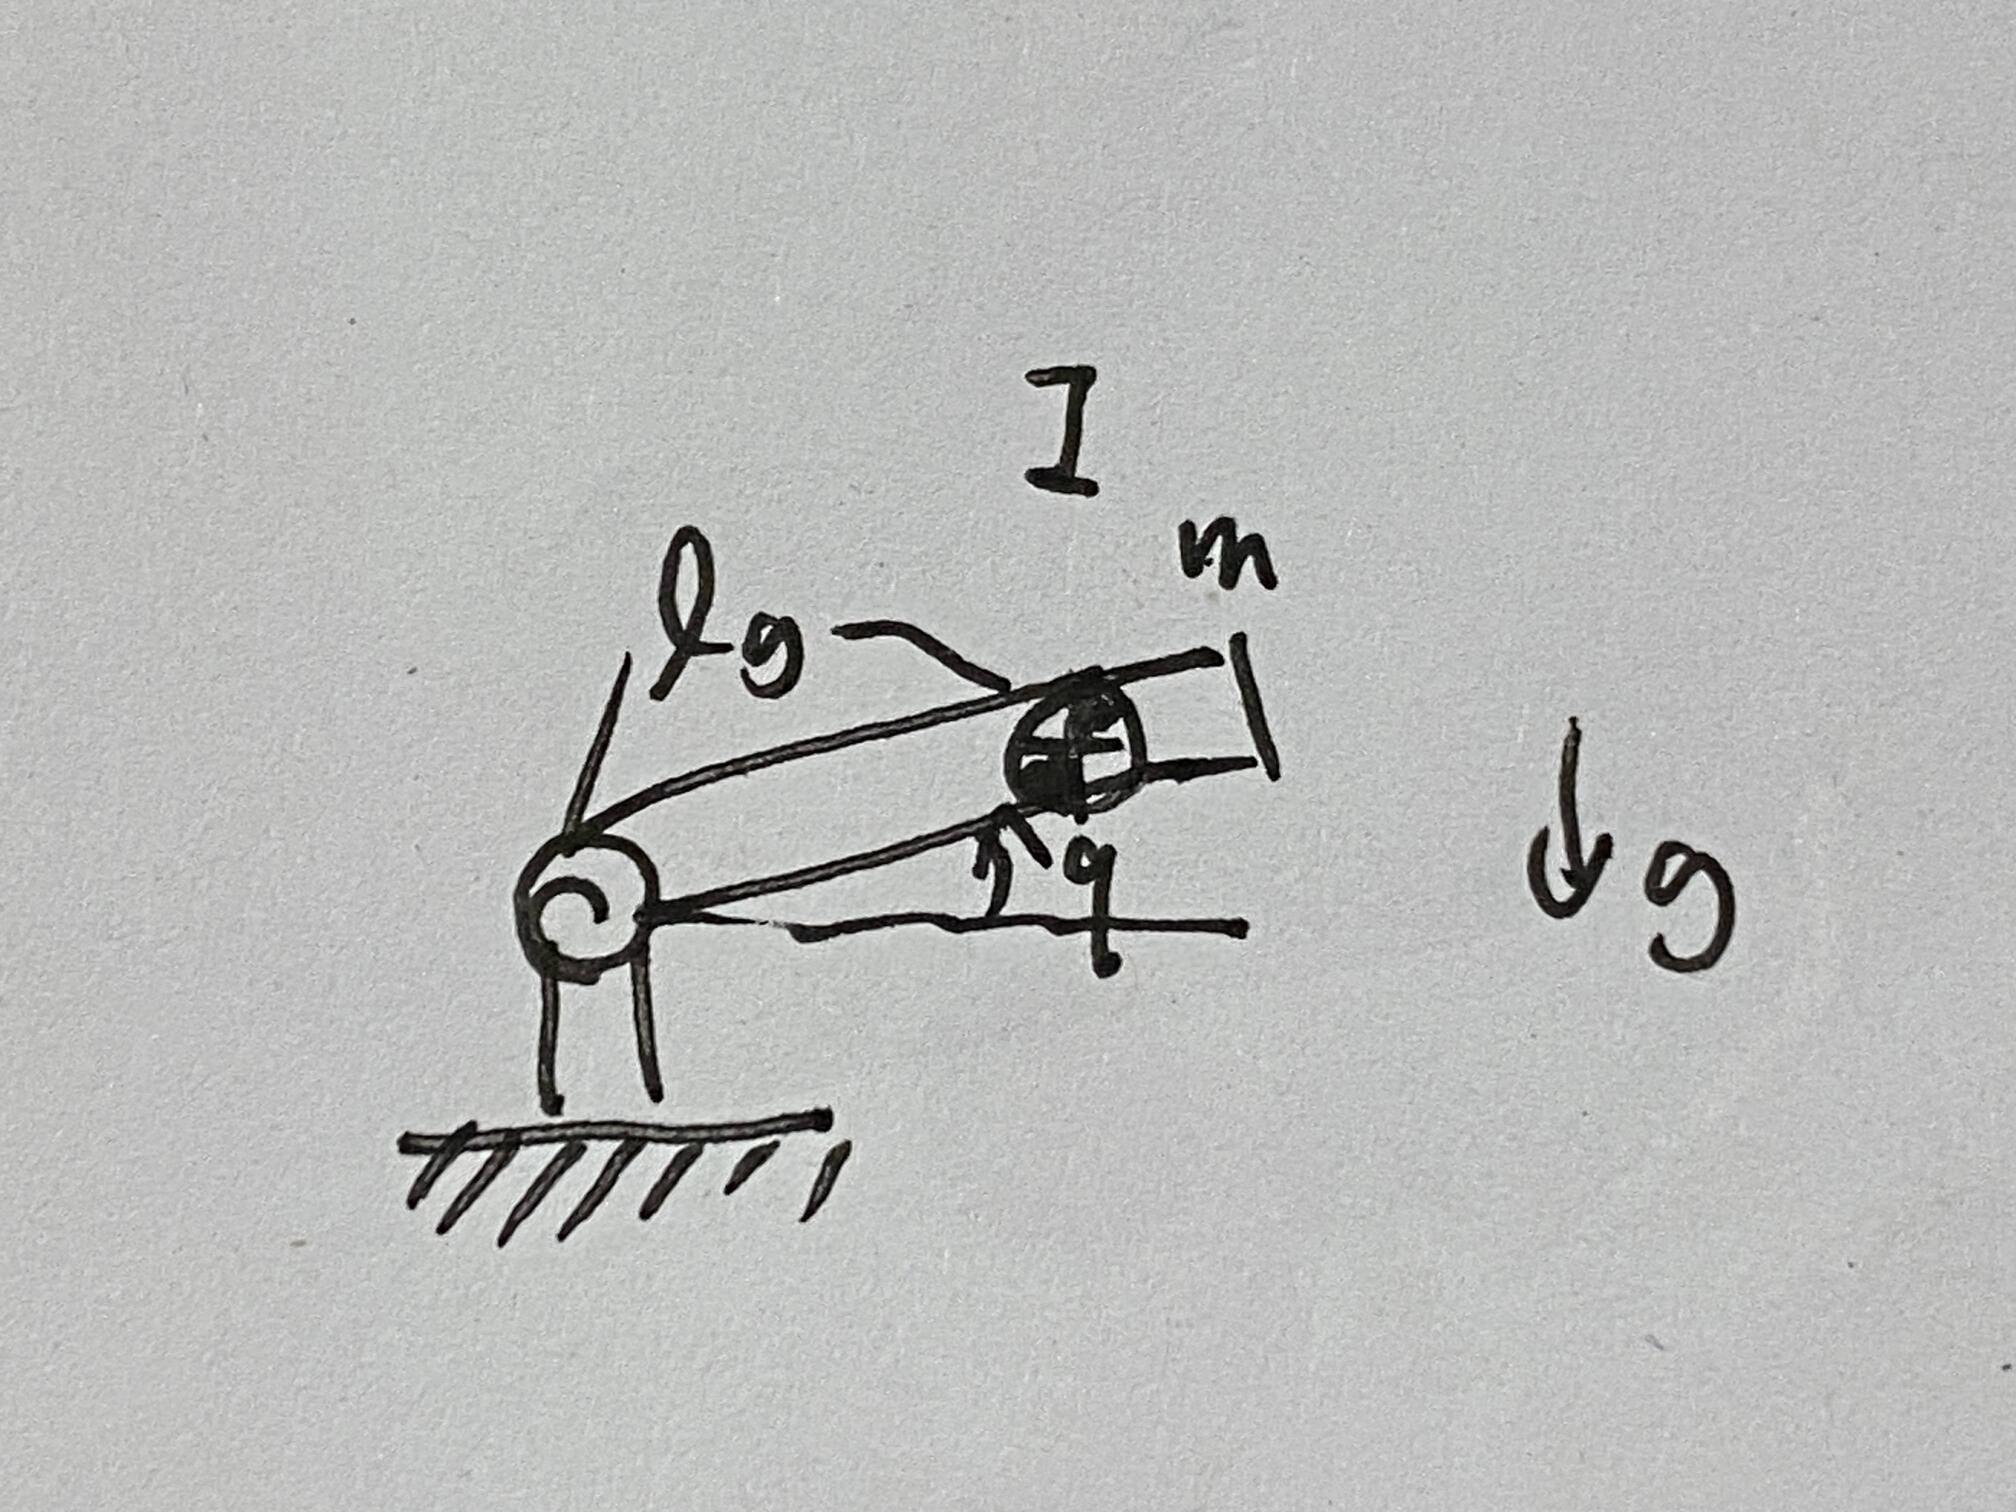 I
m
lg
q
g